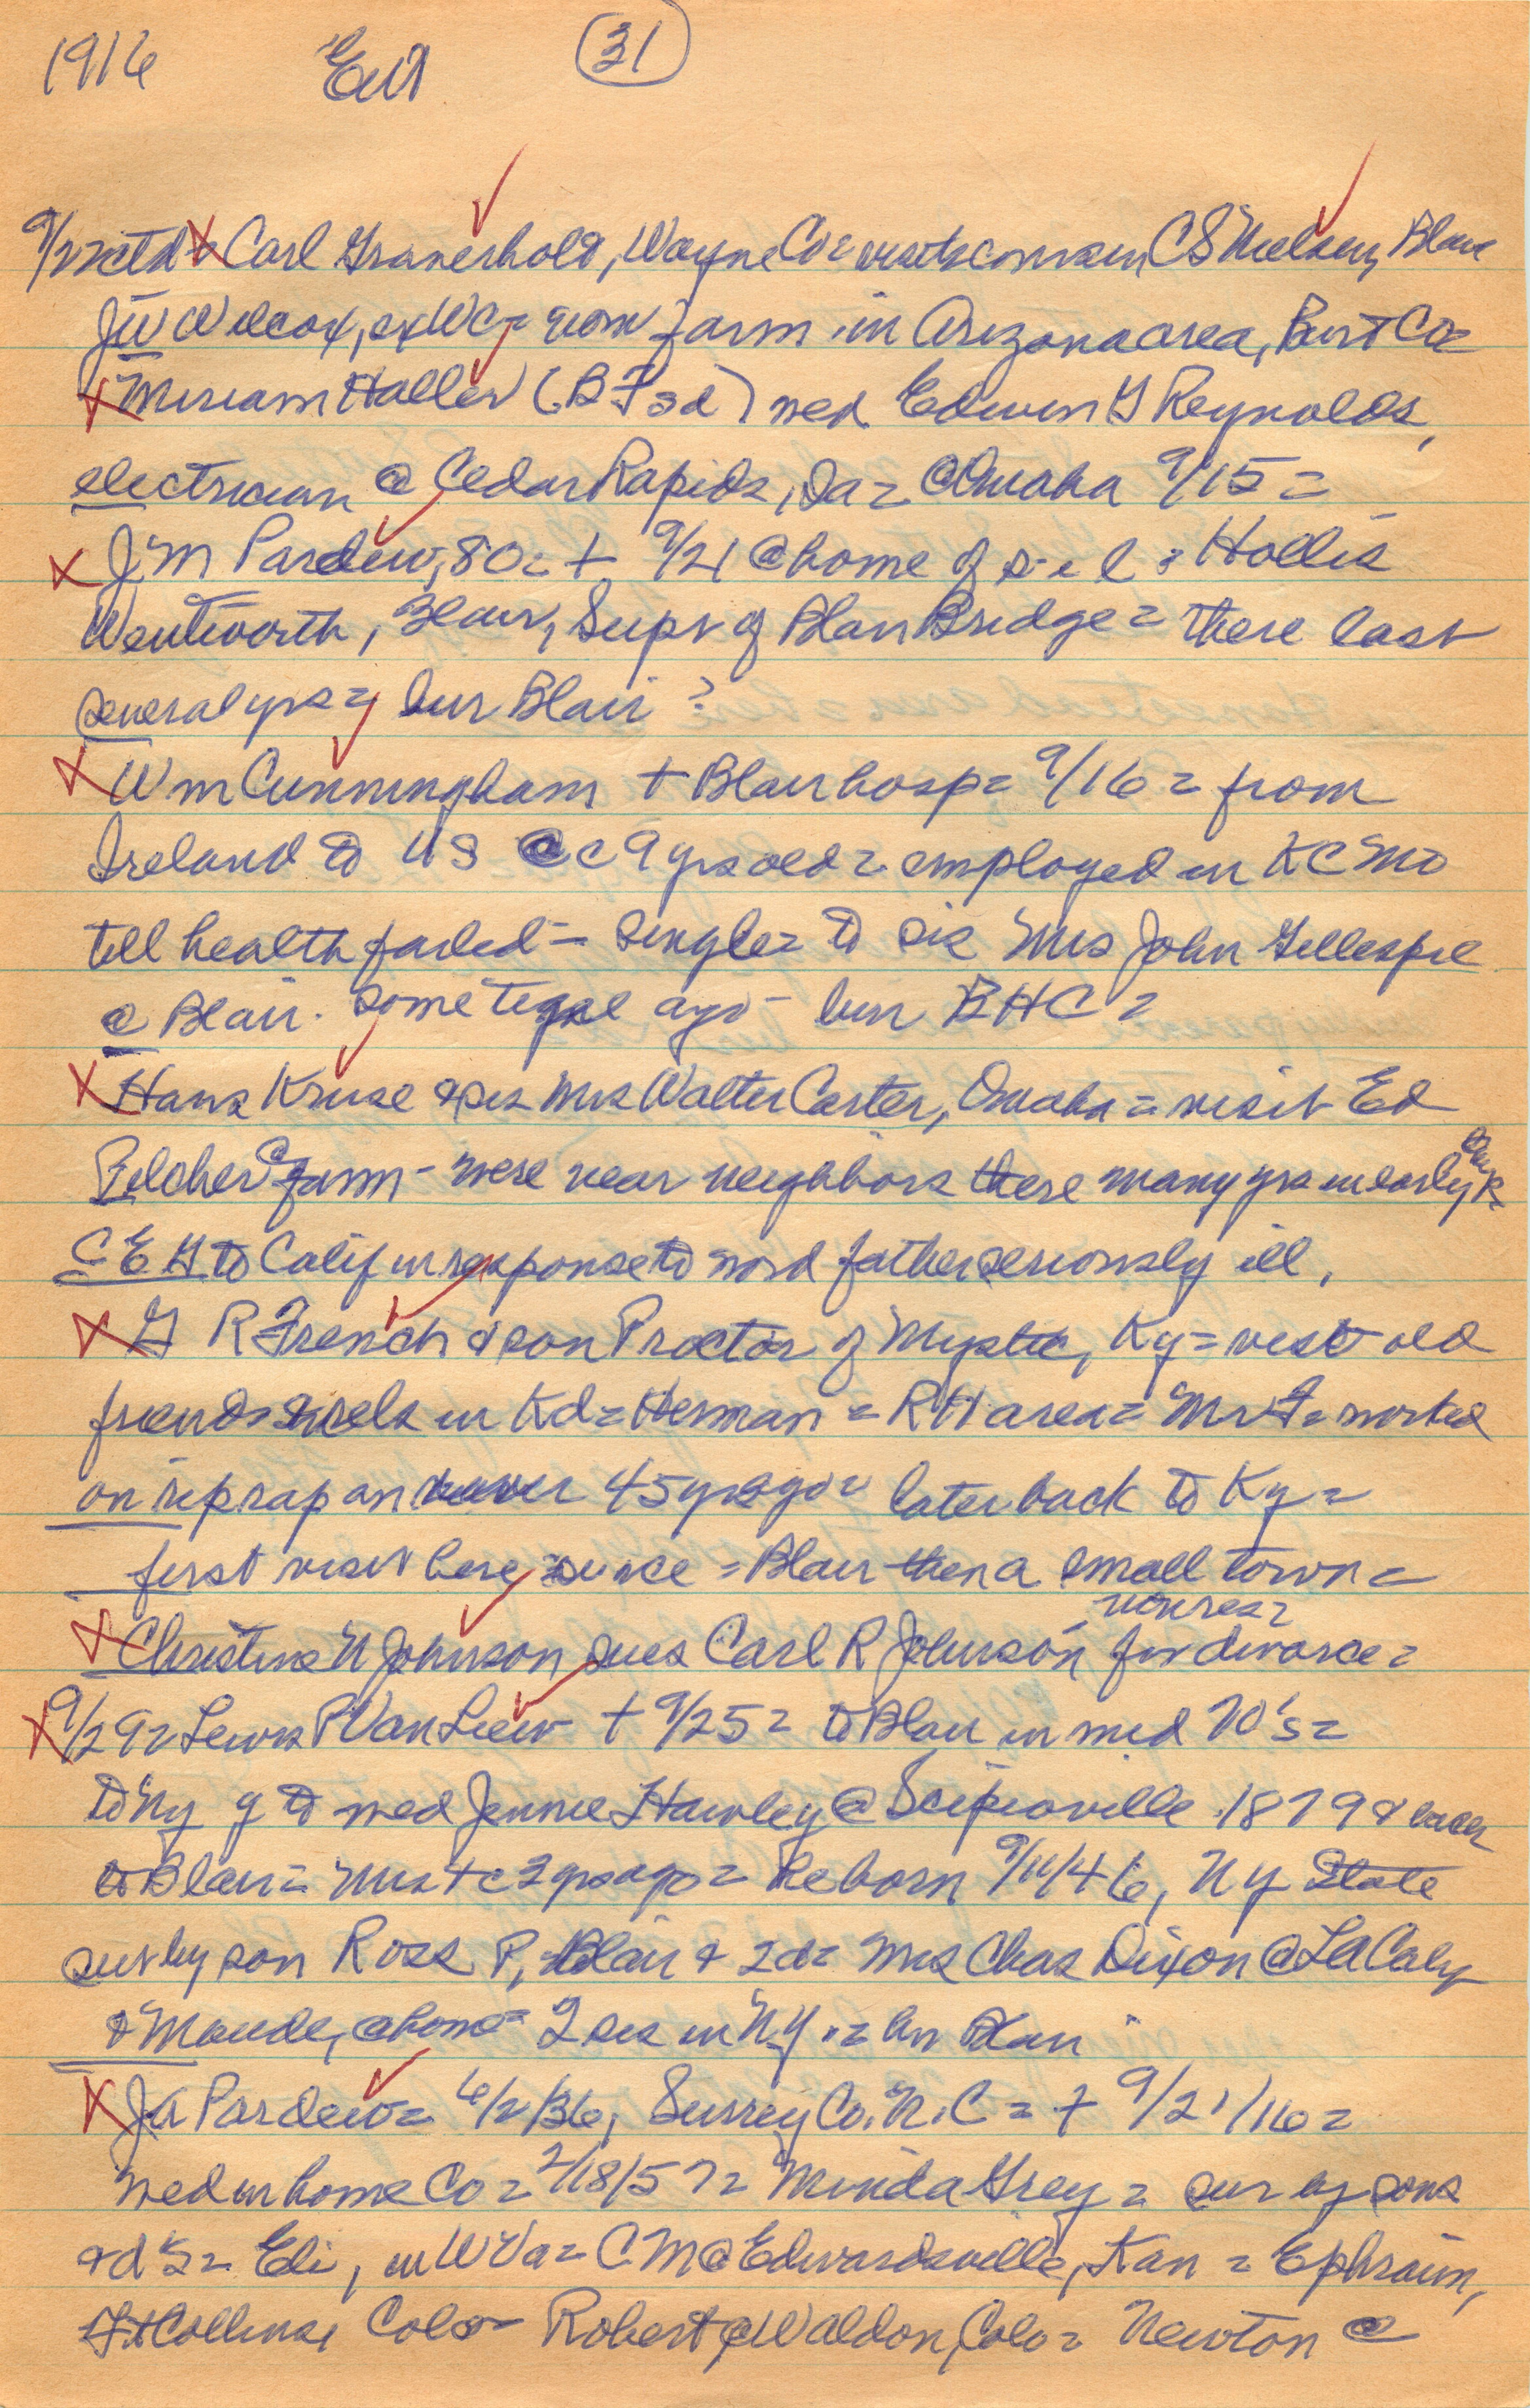 1916 Ent 31
Carl Granerhold, Wayne Co = visits cousin, C S Nielsen, Blair
J W Wilcox, ex WC = now farm in Arizona area, Burt Co =
Miriam Haller (B F 3d) wed Edwin G Reynolds,
electrician @ Cedar Rapids, Ia = @ Omaha 9/15 =
J M Pardew, 80 = + 9/21 @ home of s-i-l = Hollis
Wentworth, Blair, Supt of Blair Bridge = there last
several yrs = bur Blair ?
Wm Cunningham + Blair hosp = 9/16 = from
Ireland to US @ c 9 yrs old = employed in KC Mo
till health failed = single = to sis Mrs John Gillespie
@ Blair. some ago - bur BHC =
Hans Kruse & sis Mrs Walter Carter, Omaha = visit Ed
Pilcher farm - were near neighbors there many yrs in early
C E H to Calif in response to word father seriously ill.
G R French & son Proctor of Mystic, Ky = visit old
friends & rels in Kd = Herman = R H area = Mr F = worked
on riprap on river 45 yrs ago = later back to Ky =
first visit here since = Blair then a small town =
nonres =
Christine N Johnson sues Carl R Johnson for divorce =
9/29 = Lewis P Van Liew + 9/25 = to Blair in mid 70's =
to NY g to wed Jennie Hawley @ Scipioville 1879 & back
to Blair = Mrs + c 3 yrs ago = He born 9/11/46, NY State
sur by son Ross P, Blair & 2 d = Mrs Chas Dixon @ LA Calif
& Maude, @ home = 2 sis in N.Y. = bur Blair
J A Pardew = 6/2/36, Surrey Co. N.C = + 9/21/16 =
wed in home Co = 2/18/57 = Minda Grey = sur by sons
& d's = Eli, in W Va = C M @ Edwardsville, Kan = Ephraim,
Ft Collins, Colo = Robert @ Waldon, Colo = Newton @